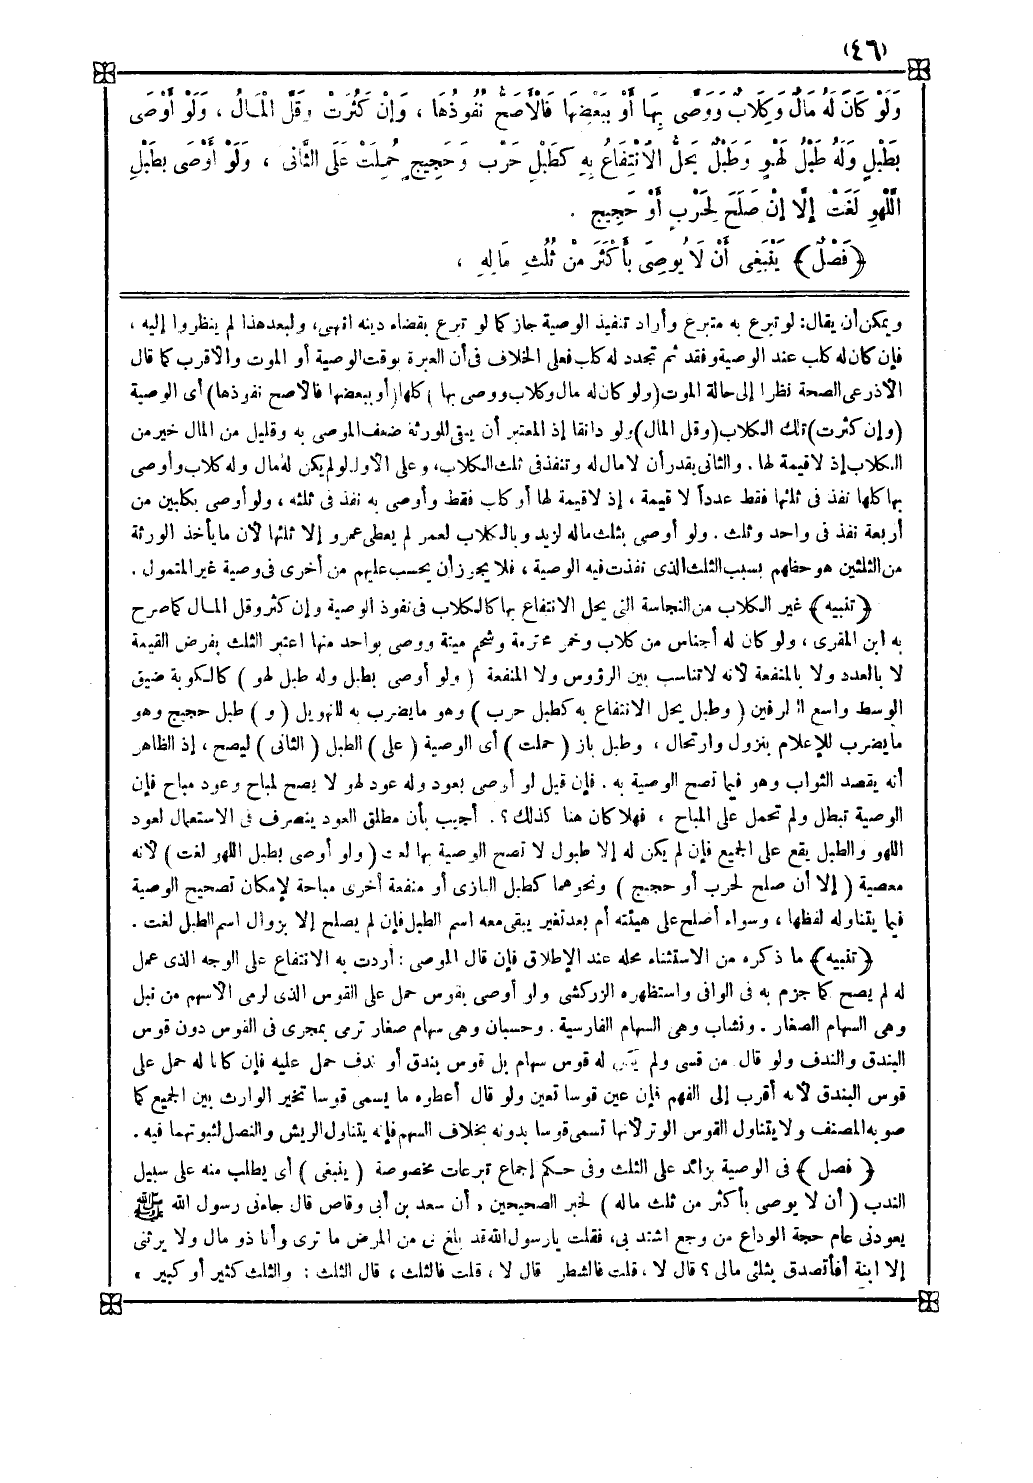 (٤٦)
وَلَوْ كَانَ لَهُ مَالٌ وَكِلَابٌ وَوَصَّى بِهَا أَوْ بِبَعْضِهَا فَالْأَصَحُّ نُفُوذُهَا ، وَإِنْ كَثُرَتْ وَقَلَّ الْمَالُ ، وَلَوْ أَوْصَى
بِطَبْلٍ وَلَهُ طَبْلُ لَهْوٍ وَطَبْلٌ يَحِلُّ الِانْتِفَاعُ بِهِ كَطَبْلِ حَرْبٍ وَحَجِيجٍ حُمِلَتْ عَلَى الثَّانِى ، وَلَوْ أَوْصَى بِطَبْلِ
اللَّهْوِ لَغَتْ إِلَّا إِنْ صَلَحَ لِحَرْبٍ أَوْ حَجِيجٍ .
﴿فَصْلٌ﴾ يَنْبَغِى أَنْ لَا يُوصِىَ بِأَكْثَرَ مِنْ ثُلُثِ مَالِهِ ،
ويمكن أن يقال: لو تبرع به متبرع وأراد تنفيذ الوصية جاز كما لو تبرع بقضاء دينه انتهى، ولبعد هذا لم ينظروا إليه ،
فإن كان له كلب عند الوصية وفقد ثم تجدد له كلب فعلى الخلاف فى أن العبرة بوقت الوصية أو الموت والأقرب كما قال
الأذرعى الصحة نظرا إلى حالة الموت (ولو كان له مال وكلاب ووصى بها ) كلها (أو ببعضها فالأصح نفوذها) أى الوصية
(وإن كثرت) تلك الكلاب (وقل المال) ولو دانقا إذ المعتبر أن يبقى للورثة ضعف الموصى به وقليل من المال خير من
الكلاب إذ لا قيمة لها . والثانى بقدر أن لا مال له وتنفذ فى ثلث الكلاب، وعلى الأول لو لم يكن له مال وله كلاب وأوصى
بها كلها نفذ فى ثلثها فقط عدداً لا قيمة ، إذ لا قيمة لها أو كلب فقط وأوصى به نفذ فى ثلثه ، ولو أوصى بكلبين من
أربعة نفذ فى واحد وثلث . ولو أوصى بثلث ماله لزيد وبالكلاب لعمر لم يعطى عمرو إلا ثلثها لأن ما يأخذ الورثة
من الثلثين هو حظهم بسبب الثلث الذى نفذت فيه الوصية ، فلا يجوز أن يحسب عليهم من أخرى فى وصية غير المتمول .
﴿تنبيه﴾ غير الكلاب من النجاسة التى يحل الانتفاع بها كالكلاب فى نفوذ الوصية وإن كثر وقل المال كما صرح
به ابن المقرى ، ولو كان له أجناس من كلاب وخمر محترمة وشحم ميتة ووصى بواحد منها اعتبر الثلث بفرض القيمة
لا بالعدد ولا بالمنفعة لأنه لا تناسب بين الرؤوس ولا المنفعة ( ولو أوصى بطبل وله طبل لهو ) كالكوبة ضيق
الوسط واسع الطرفين ( وطبل يحل الانتفاع به كطبل حرب ) وهو ما يضرب به للتهويل ( و ) طبل حجيج وهو
ما يضرب للإعلام بنزول وارتحال ، وطبل باز ( حملت ) أى الوصية ( على ) الطبل ( الثانى ) ليصح ، إذ الظاهر
أنه يقصد الثواب وهو فيما تصح الوصية به . فإن قيل لو أوصى بعود وله عود لهو لا يصح لمباح وعود مباح فإن
الوصية تبطل ولم تحمل على المباح ، فهلا كان هنا كذلك ؟ . أجيب بأن مطلق العود ينصرف فى الاستعمال لعود
اللهو والطبل يقع على الجميع فإن لم يكن له إلا طبول لا تصح الوصية بها لغت ( ولو أوصى بطبل اللهو لغت ) لأنه
معصية ( إلا أن صلح لحرب أو حجيج ) ونحوهما كطبل البازى أو منفعة أخرى مباحة لإمكان تصحيح الوصية
فيما يتناوله لفظها ، وسواء أصلح على هيئته أم بعد تغير يبقى معه اسم الطبل فإن لم يصلح إلا بزوال اسم الطبل لغت .
﴿تنبيه﴾ ما ذكره من الاستثناء محله عند الإطلاق فإن قال الموصى : أردت به الانتفاع على الوجه الذى عمل
له لم يصح كما جزم به فى الوافى واستظهره الزركشى ولو أوصى بقوس حمل على القوس الذى لرمى الأسهم من نبل
وهى السهام الصغار . ونشاب وهى السهام الفارسية . وحسبان وهى سهام صغار ترمى بمجرى فى القوس دون قوس
البندق والندف ولو قال من قسى ولم يكن له قوس سهام بل قوس بندق أو ندف حمل عليه فإن كانا له حمل على
قوس البندق لأنه أقرب إلى الفهم فإن عين قوسا تعين ولو قال أعطوه ما يسمى قوسا تخير الوارث بين الجميع كما
صوبه المصنف ولا يتناول القوس الوتر لأنها تسمى قوسا بدونه بخلاف السهم فإنه يتناول الريش والنصل لثبوتهما فيه .
﴿ فصل ﴾ فى الوصية بزائد على الثلث وفى حكم إجماع تبرعات مخصوصة ( ينبغى ) أى يطلب منه على سبيل
الندب ( أن لا يوصى بأكثر من ثلث ماله ) لخبر الصحيحين « أن سعد بن أبى وقاص قال جاءنى رسول الله ﷺ
يعودنى عام حجة الوداع من وجع اشتد بى، فقلت يارسول الله قد بلغ بى من المرض ما ترى وأنا ذو مال ولا يرثنى
إلا ابنة أفأتصدق بثلثى مالى ؟ قال لا ، قلت فالشطر قال لا ، قلت فالثلث ، قال الثلث : والثلث كثير أو كبير »